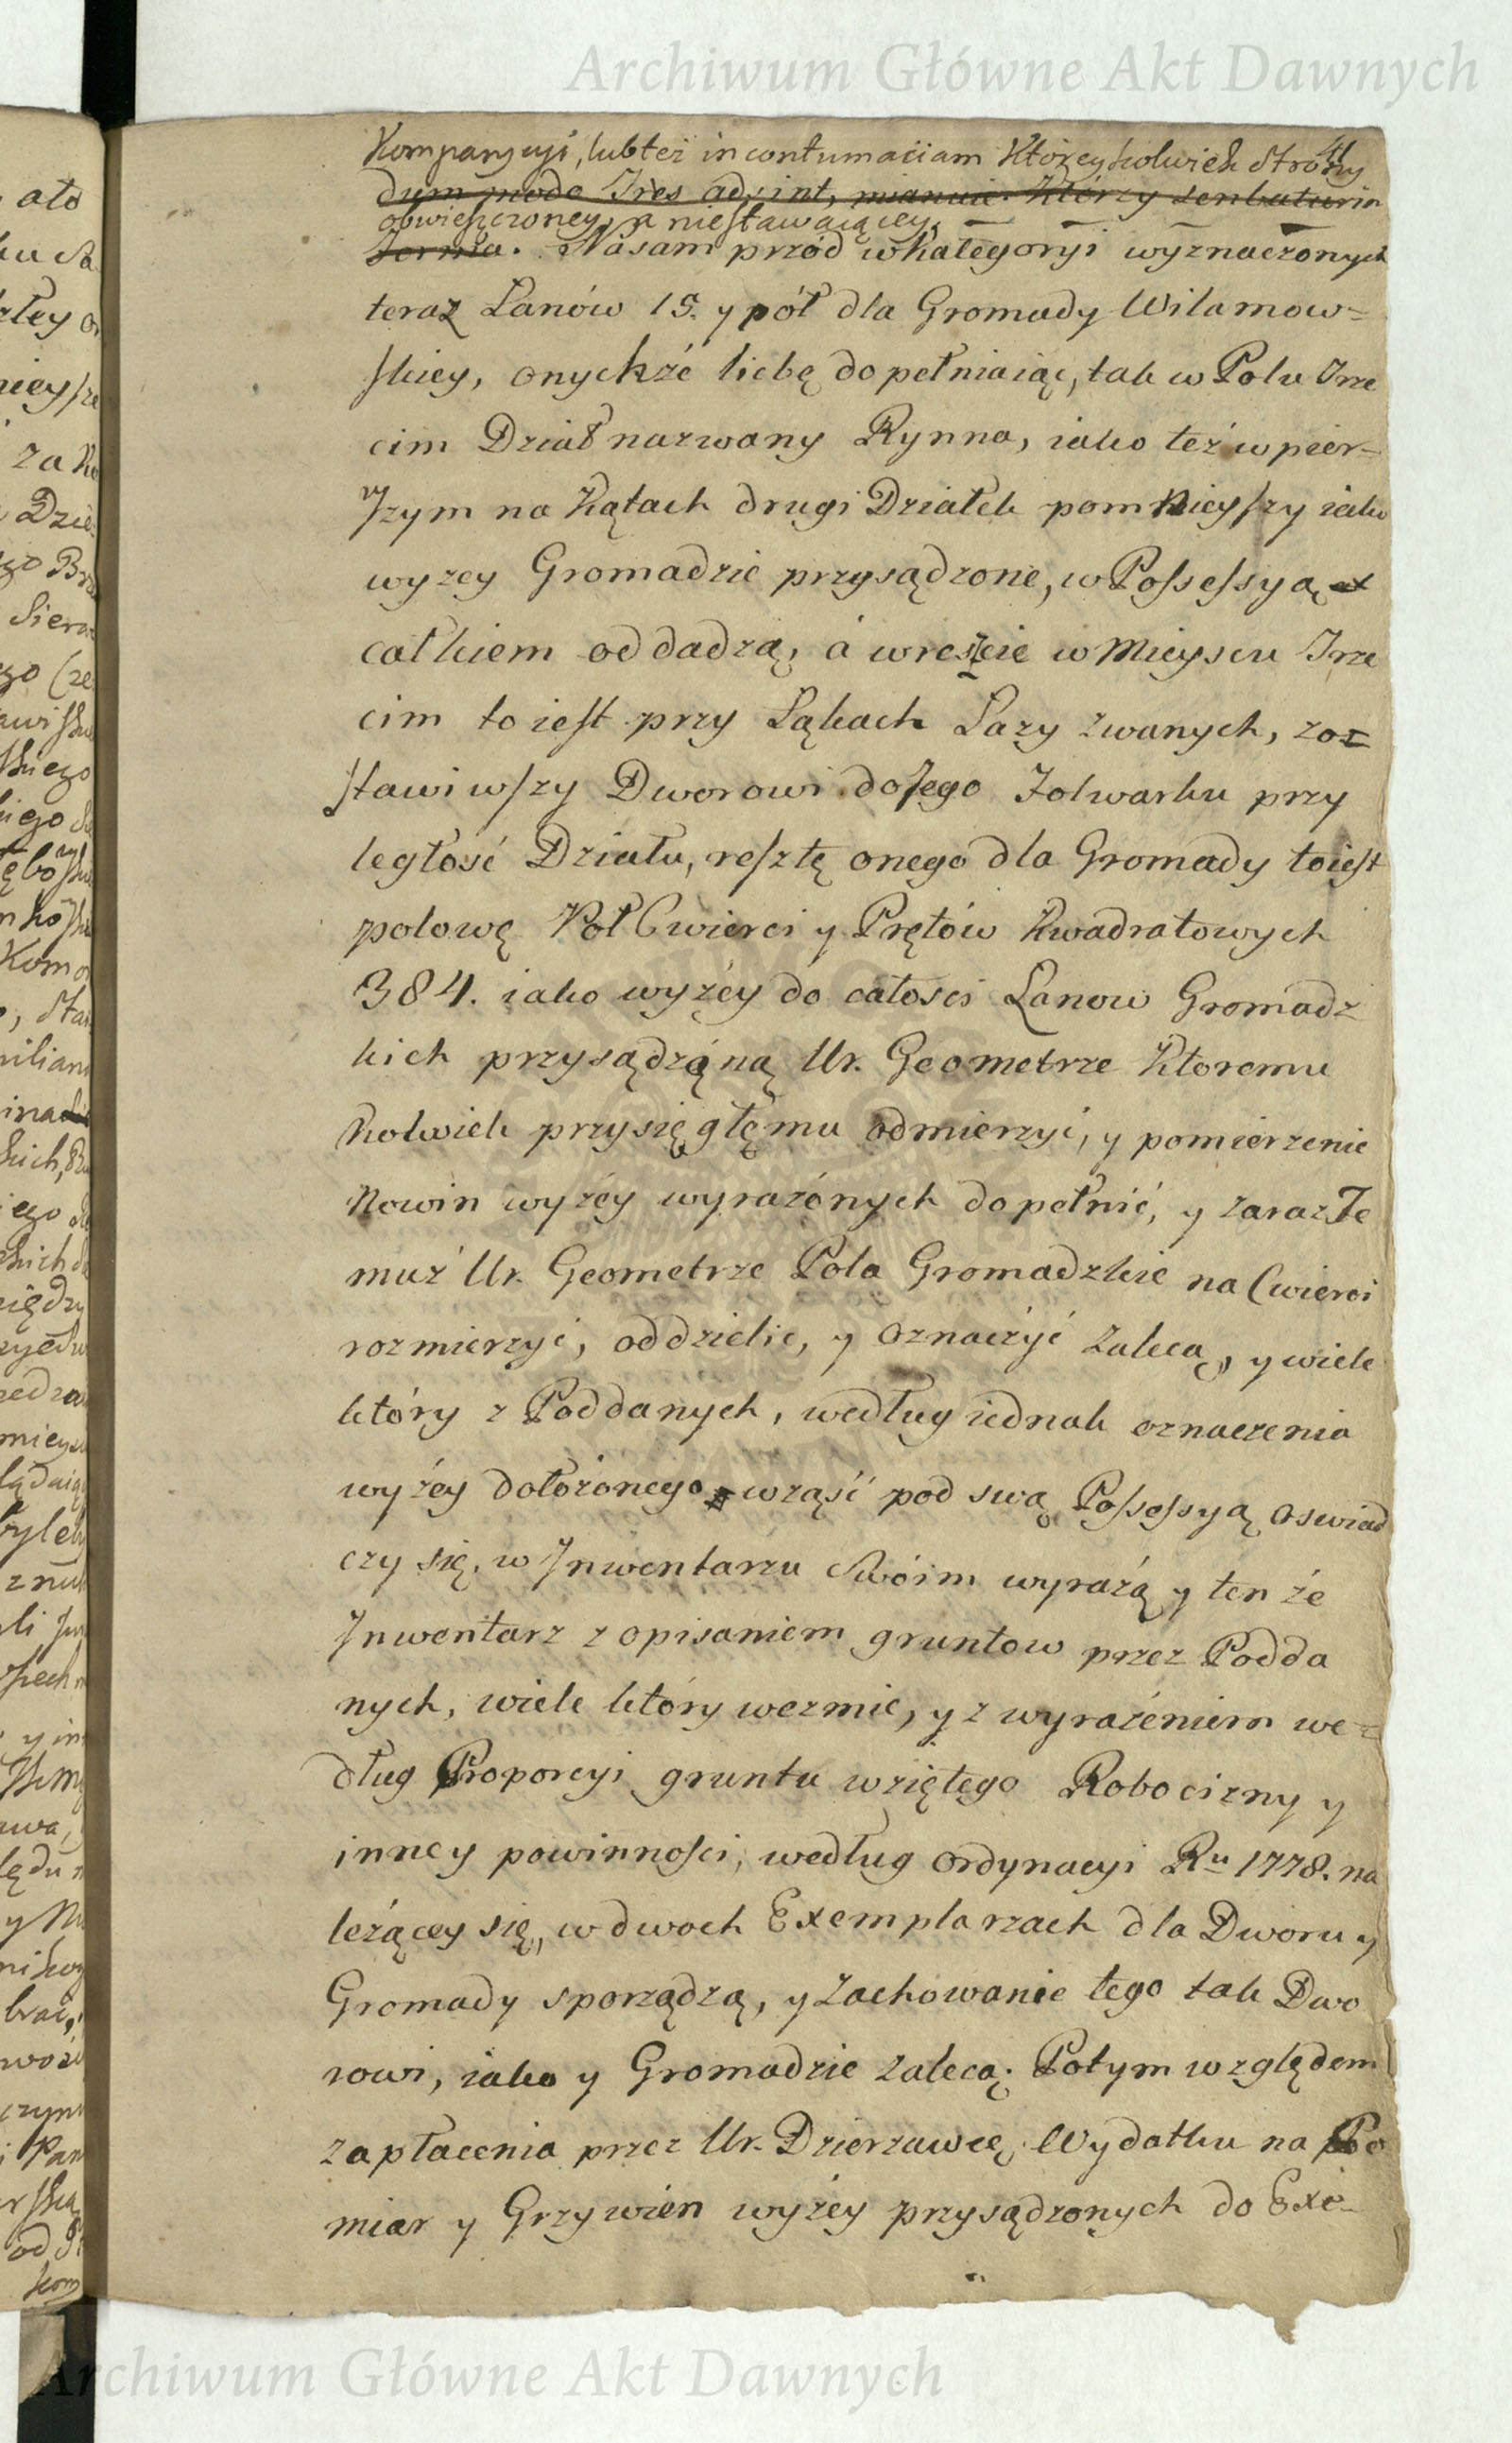 Archiwum Główne Akt Dawnych
41
Komparycyi, lub też in contumaciam Którey kolwiek Strony
dum modo Tres adsint, mianuie. Którzy
obwieszczoney, a niestawaiącey,
Nasam przód w kategoryi wyznaczonych
teraz Łanów 15. y pół dla Gromady Wilamow=
skiey, onychże liczbę dopełniaiąc, tak w Polu Trze
cim Dział nazwany Rynna, iako też w pier=
szym na Kątach drugi Działek pomnieyszy iako
wyzey Gromadzie przysądzone, w Possessyą
całkiem oddadzą, á wreszcie w Mieyscu Trze
cim to iest przy Łąkach Lazy zwanych, zo=
stawiwszy Dworowi do Jego Folwarku przy
ległość Działu, resztę onego dla Gromady toiest
polowę Poł Cwierci y Prętów Kwadratowych
384. iako wyżéy do całosci Łanow Gromadz
kich przysądzoną Ur. Geometrze Ktoremu
kolwiek przysięgłemu odmierzyć, y pomierzenie
Nowin wyżéy wyrażónych dopełnić, y zaraz Te
muż Ur. Geometrze Pola Gromadzkie na Cwierci
rozmierzyć, oddzielic, y oznaczyć zalecą, y wiele
który z Poddanych, według iednak oznaczenia
wyżey dołożonego wziąść pod swą Possessyą oswiad
czy się, w Inwentarzu Swóim wyrażą y ten że
Inwentarz z opisaniem gruntow przez Podda
nych, wiele który wezmie, y z wyrażéniem we=
dług Proporcyi gruntu wziętego Robocizny y
inney powinności, według ordynacyi Ru 1778. na
leżącey się, w dwoch Exemplarzach dla Dworu y
Gromady sporządzą, y zachowanie tego tak Dwo
rowi, iako y Gromadzie zalecą; Potym względem
zapłacenia przez Ur. Dzierzawcę Wydatku na Po
miar y Grzywien wyżey przysądzonych do Exe=
Archiwum Główne Akt Dawnych